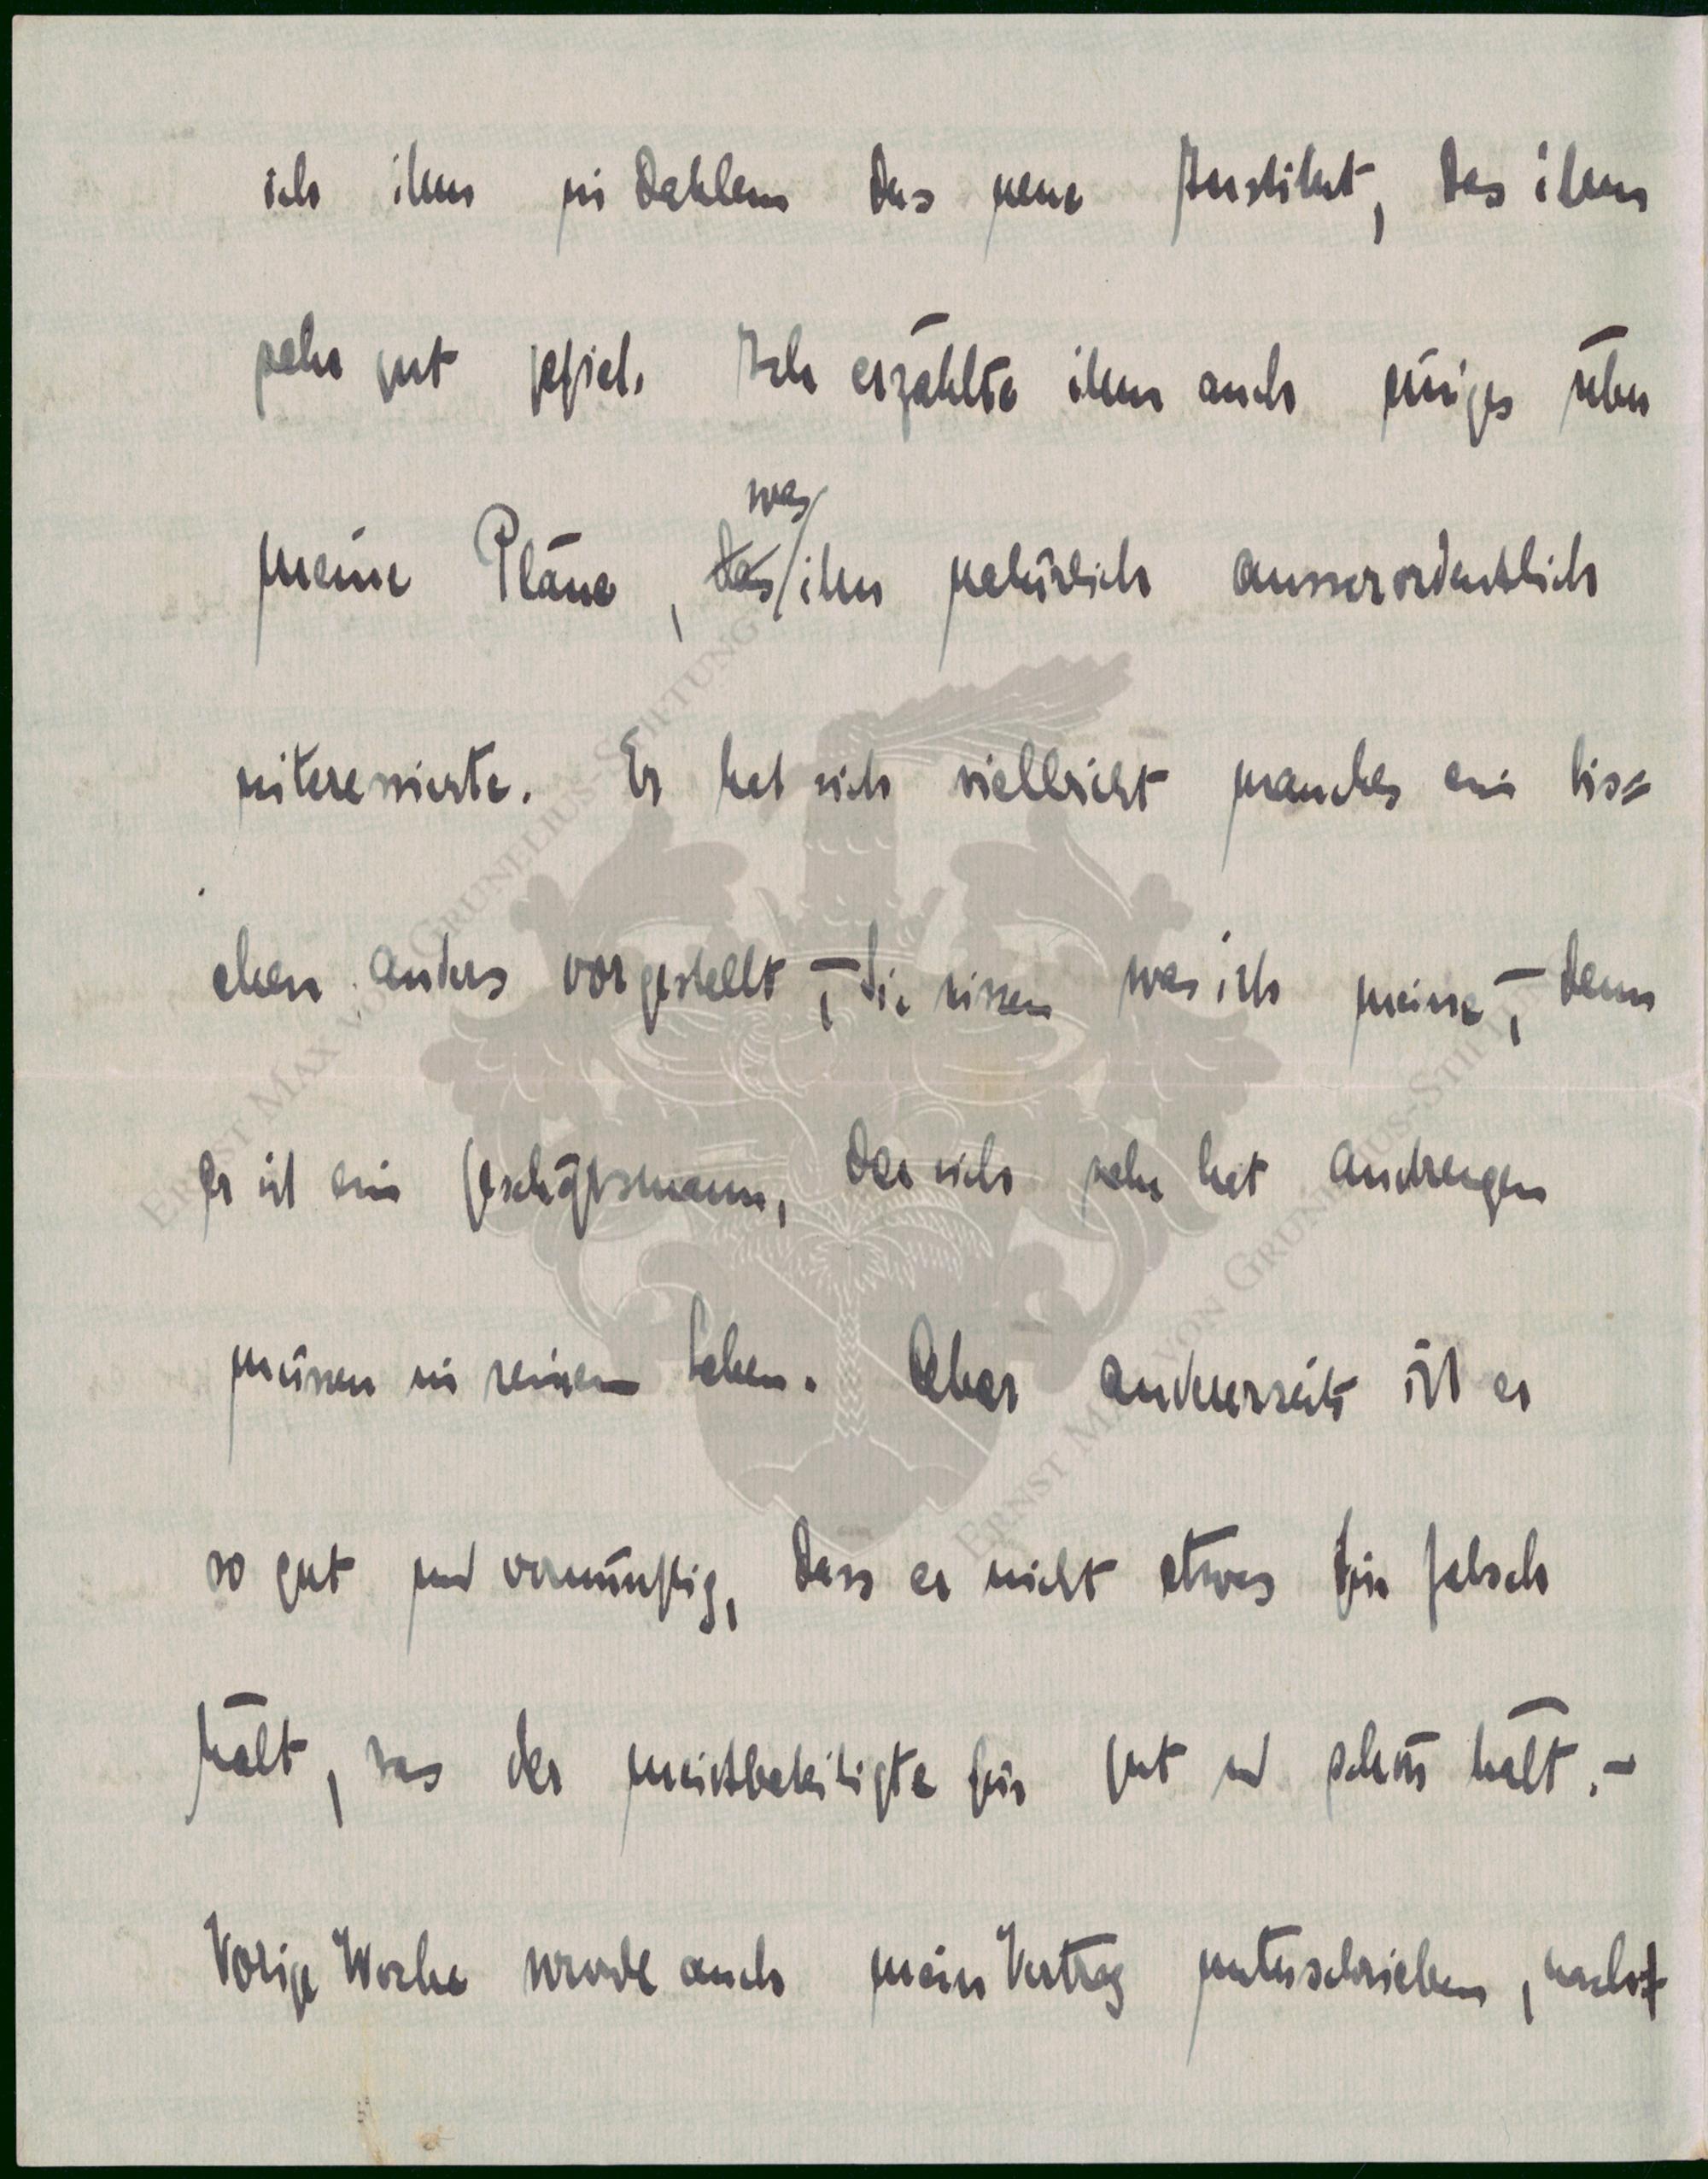 ich ihm in Dahlem das neue Institut, das ihm
sehr gut gefiel. Ich erzählte ihm auch einiges über
was
meine Pläne, das ihn natürlich ausserordentlich
interessierte. Er hat sich vielleicht manches ein bis=
chen anders vorgestellt, – Sie wissen was ich meine, – denn
er ist ein Geschäftsmann, der sich sehr hat anstrengen
müssen in seinem Leben. Aber andererseits ist er
so gut und vernünftig, dass er nicht etwas für falsch
hält, was der meistbeteiligte für gut und schön hält. –
Vorige Woche wurde auch mein Vertrag unterschrieben,
ERNST MAX VON GRUNELIUS-STIFTUNG
ERNST MAX VON GRUNELIUS-STIFTUNG